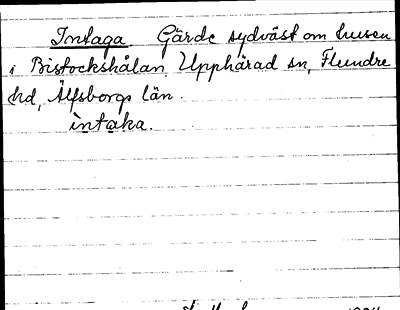 Intaga. Gärde sydväst om husen
i Bistockshålan Upphärad sn, Flundre
hd, Älfsborgs län.
intaka.